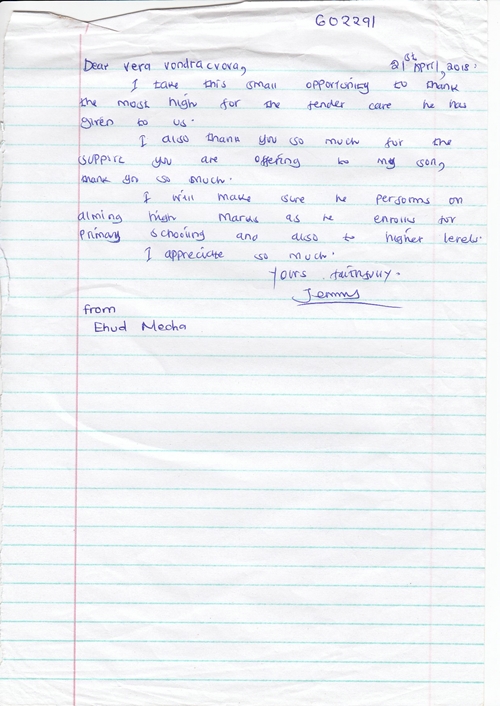 G02291
Dear Vera Vondracvova, 21st April, 2018.
I take this small opportunity to thank
the most high for the tender care he has
given to us.
I also thank you so much for the
suppirt you are offering to my son,
thank yo so much.
I will make sure he performs on
aiming high marks as he enrolls for
primary schooling and also to higher levels.
I appreciate so much.
Yours faithfully.
from
Ehud Mecha